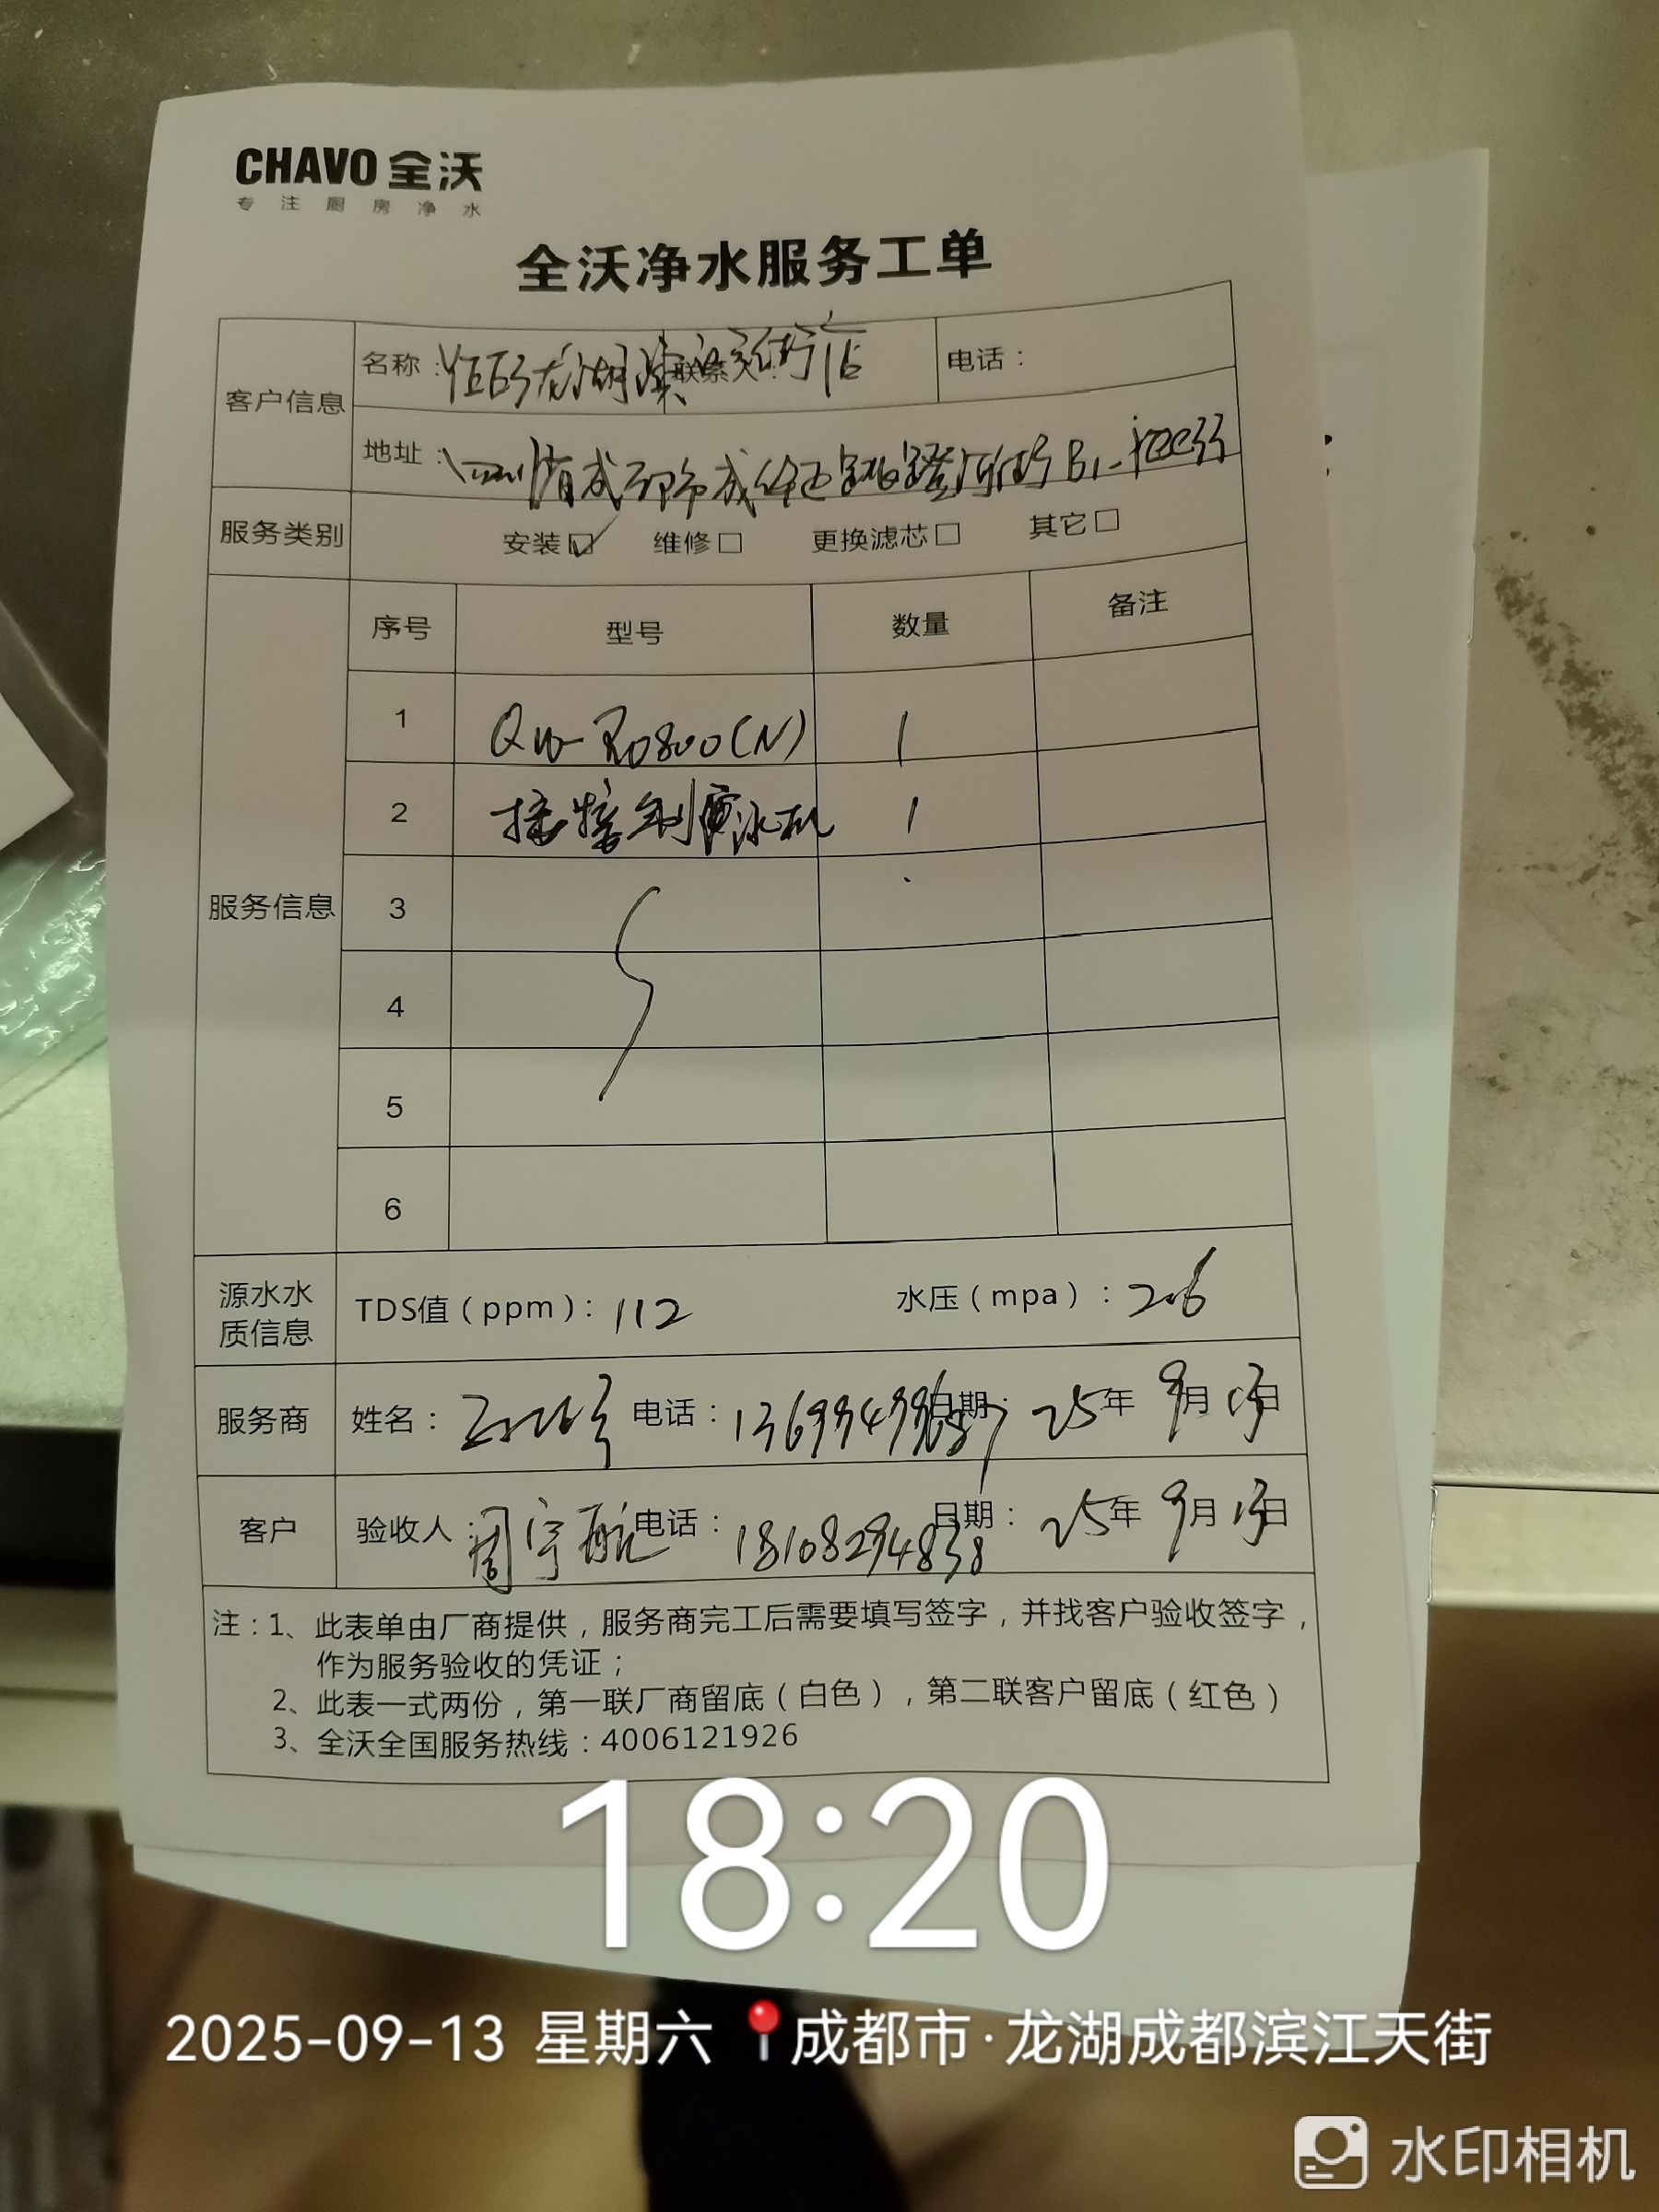 CHAVO 全沃
专注厨房净水
全沃净水服务工单
客户信息
名称： 龙湖滨 店 联系人： 电话：
地址： 四川省成都市成华区 B1-
服务类别 安装☑ 维修□ 更换滤芯□ 其它□
服务信息
序号 型号 数量 备注
1 QW-RO800(N) 1
2 制 冰机 1
3
4
5
6
源水水质信息 TDS值（ppm）：112 水压（mpa）：2.6
服务商 姓名： 电话： 日期： 25年 9月 13日
客户 验收人：周宇航 电话：18108294838 日期： 25年 9月 13日
注：1、此表单由厂商提供，服务商完工后需要填写签字，并找客户验收签字，
作为服务验收的凭证；
2、此表一式两份，第一联厂商留底（白色），第二联客户留底（红色）
3、全沃全国服务热线：4006121926
18:20
2025-09-13 星期六 成都市·龙湖成都滨江天街
水印相机